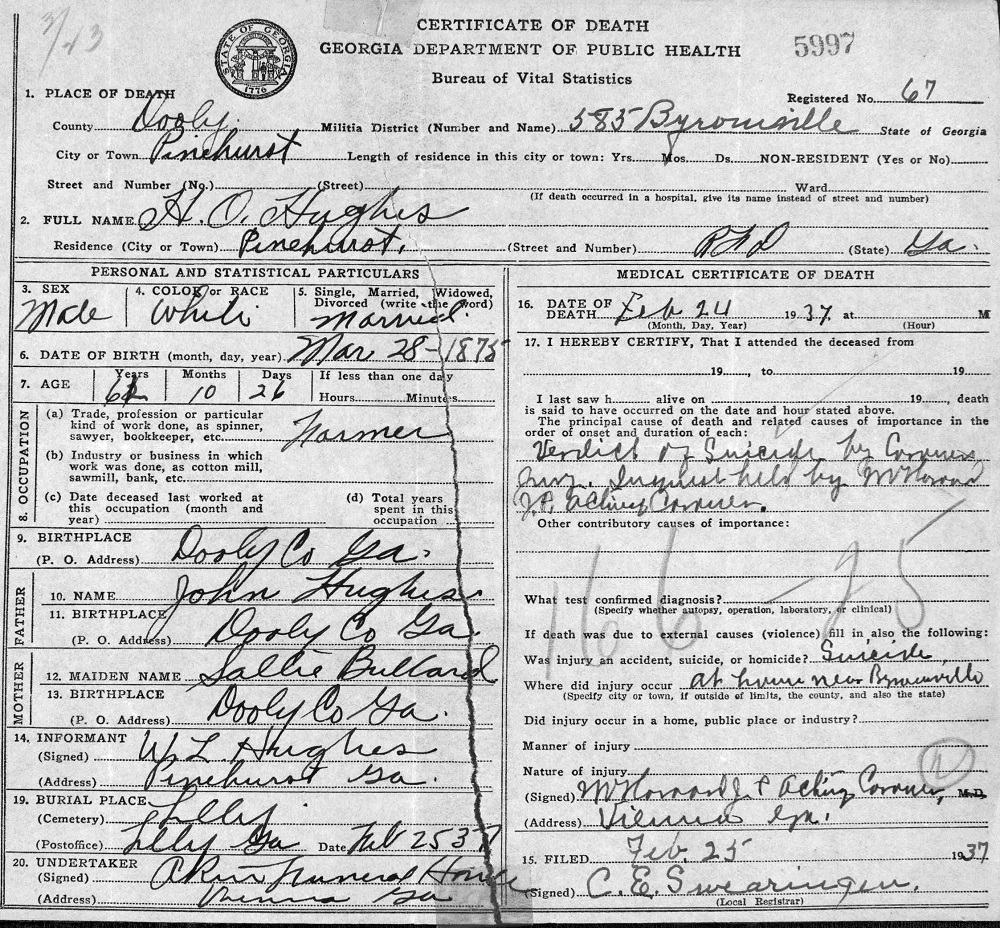 3/23
CERTIFICATE OF DEATH
GEORGIA DEPARTMENT OF PUBLIC HEALTH
5997
Bureau of Vital Statistics
STATE OF GEORGIA
1776
1. PLACE OF DEATH
Registered No. 67
County Dooly Militia District (Number and Name) 585 Byromville State of Georgia
City or Town Pinehurst Length of residence in this city or town: Yrs. Mos. Ds. NON-RESIDENT (Yes or No)
Street and Number (No.) (Street) Ward
(If death occurred in a hospital, give its name instead of street and number)
2. FULL NAME H. O. Hughes
Residence (City or Town) Pinehurst, (Street and Number) RFD (State) Ga.
PERSONAL AND STATISTICAL PARTICULARS
3. SEX Male
4. COLOR or RACE White
5. Single, Married, Widowed, Divorced (write the word) Married.
6. DATE OF BIRTH (month, day, year) Mar 28-1875
7. AGE Years Months 10 Days 26 If less than one day Hours Minutes
8. OCCUPATION
(a) Trade, profession or particular
kind of work done, as spinner,
sawyer, bookkeeper, etc. Farmer
(b) Industry or business in which
work was done, as cotton mill,
sawmill, bank, etc.
(c) Date deceased last worked at
this occupation (month and
year)
(d) Total years
spent in this
occupation
9. BIRTHPLACE
(P. O. Address) Dooly Co Ga.
FATHER
10. NAME John Hughes
11. BIRTHPLACE
(P. O. Address) Dooly Co Ga.
MOTHER
12. MAIDEN NAME Sallie Bullard
13. BIRTHPLACE
(P. O. Address) Dooly Co Ga.
14. INFORMANT
(Signed) W. L. Hughes
(Address) Pinehurst Ga.
19. BURIAL PLACE
(Cemetery) Lilly
(Postoffice) Lilly Ga Date Feb 25 37
20. UNDERTAKER
(Signed) Akin Funeral Home
(Address) Vienna Ga
MEDICAL CERTIFICATE OF DEATH
16. DATE OF
DEATH Feb 24 1937 at M
(Month, Day, Year) (Hour)
17. I HEREBY CERTIFY, That I attended the deceased from
19 , to 19
I last saw h alive on 19 , death
is said to have occurred on the date and hour stated above.
The principal cause of death and related causes of importance in the
order of onset and duration of each:
Verdict of Suicide by Coroners
Jury. Inquest held by
J.P. Acting Coroner.
Other contributory causes of importance:
166 - 25
What test confirmed diagnosis?
(Specify whether autopsy, operation, laboratory, or clinical)
If death was due to external causes (violence) fill in also the following:
Was injury an accident, suicide, or homicide? Suicide
Where did injury occur at home near Byromville
(Specify city or town, if outside of limits, the county, and also the state)
Did injury occur in a home, public place or industry?
Manner of injury
Nature of injury
(Signed) J. P. Acting Coroner, M.D.
(Address) Vienna Ga.
15. FILED Feb. 25 1937
(Signed) C. E. Swearingen.
(Local Registrar)